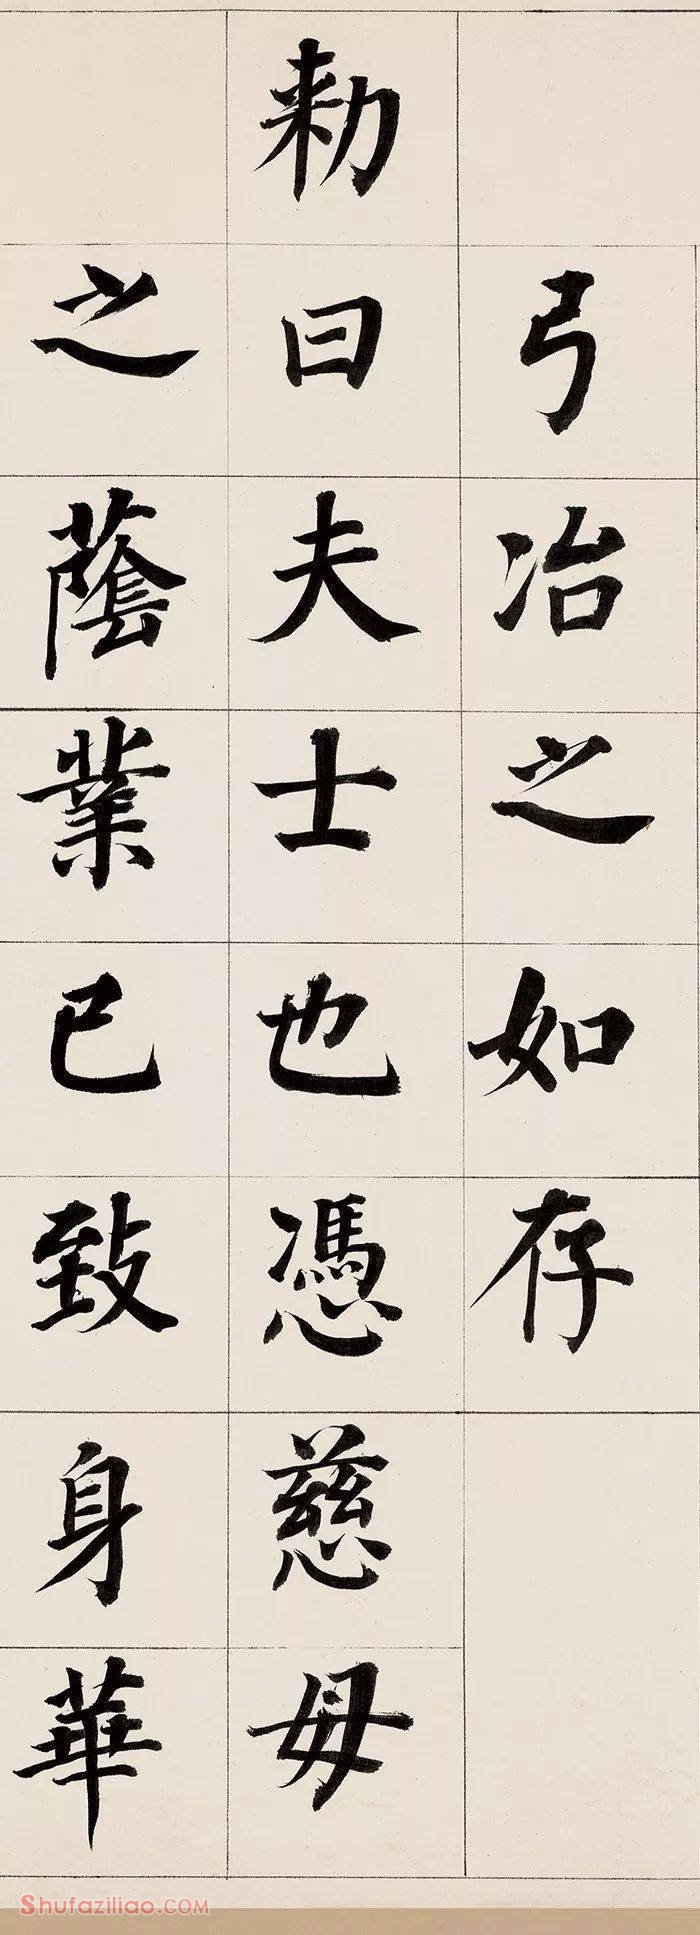 弓冶之如存
勑曰夫士也憑慈母
之蔭業已致身華
Shufaziliao.COM